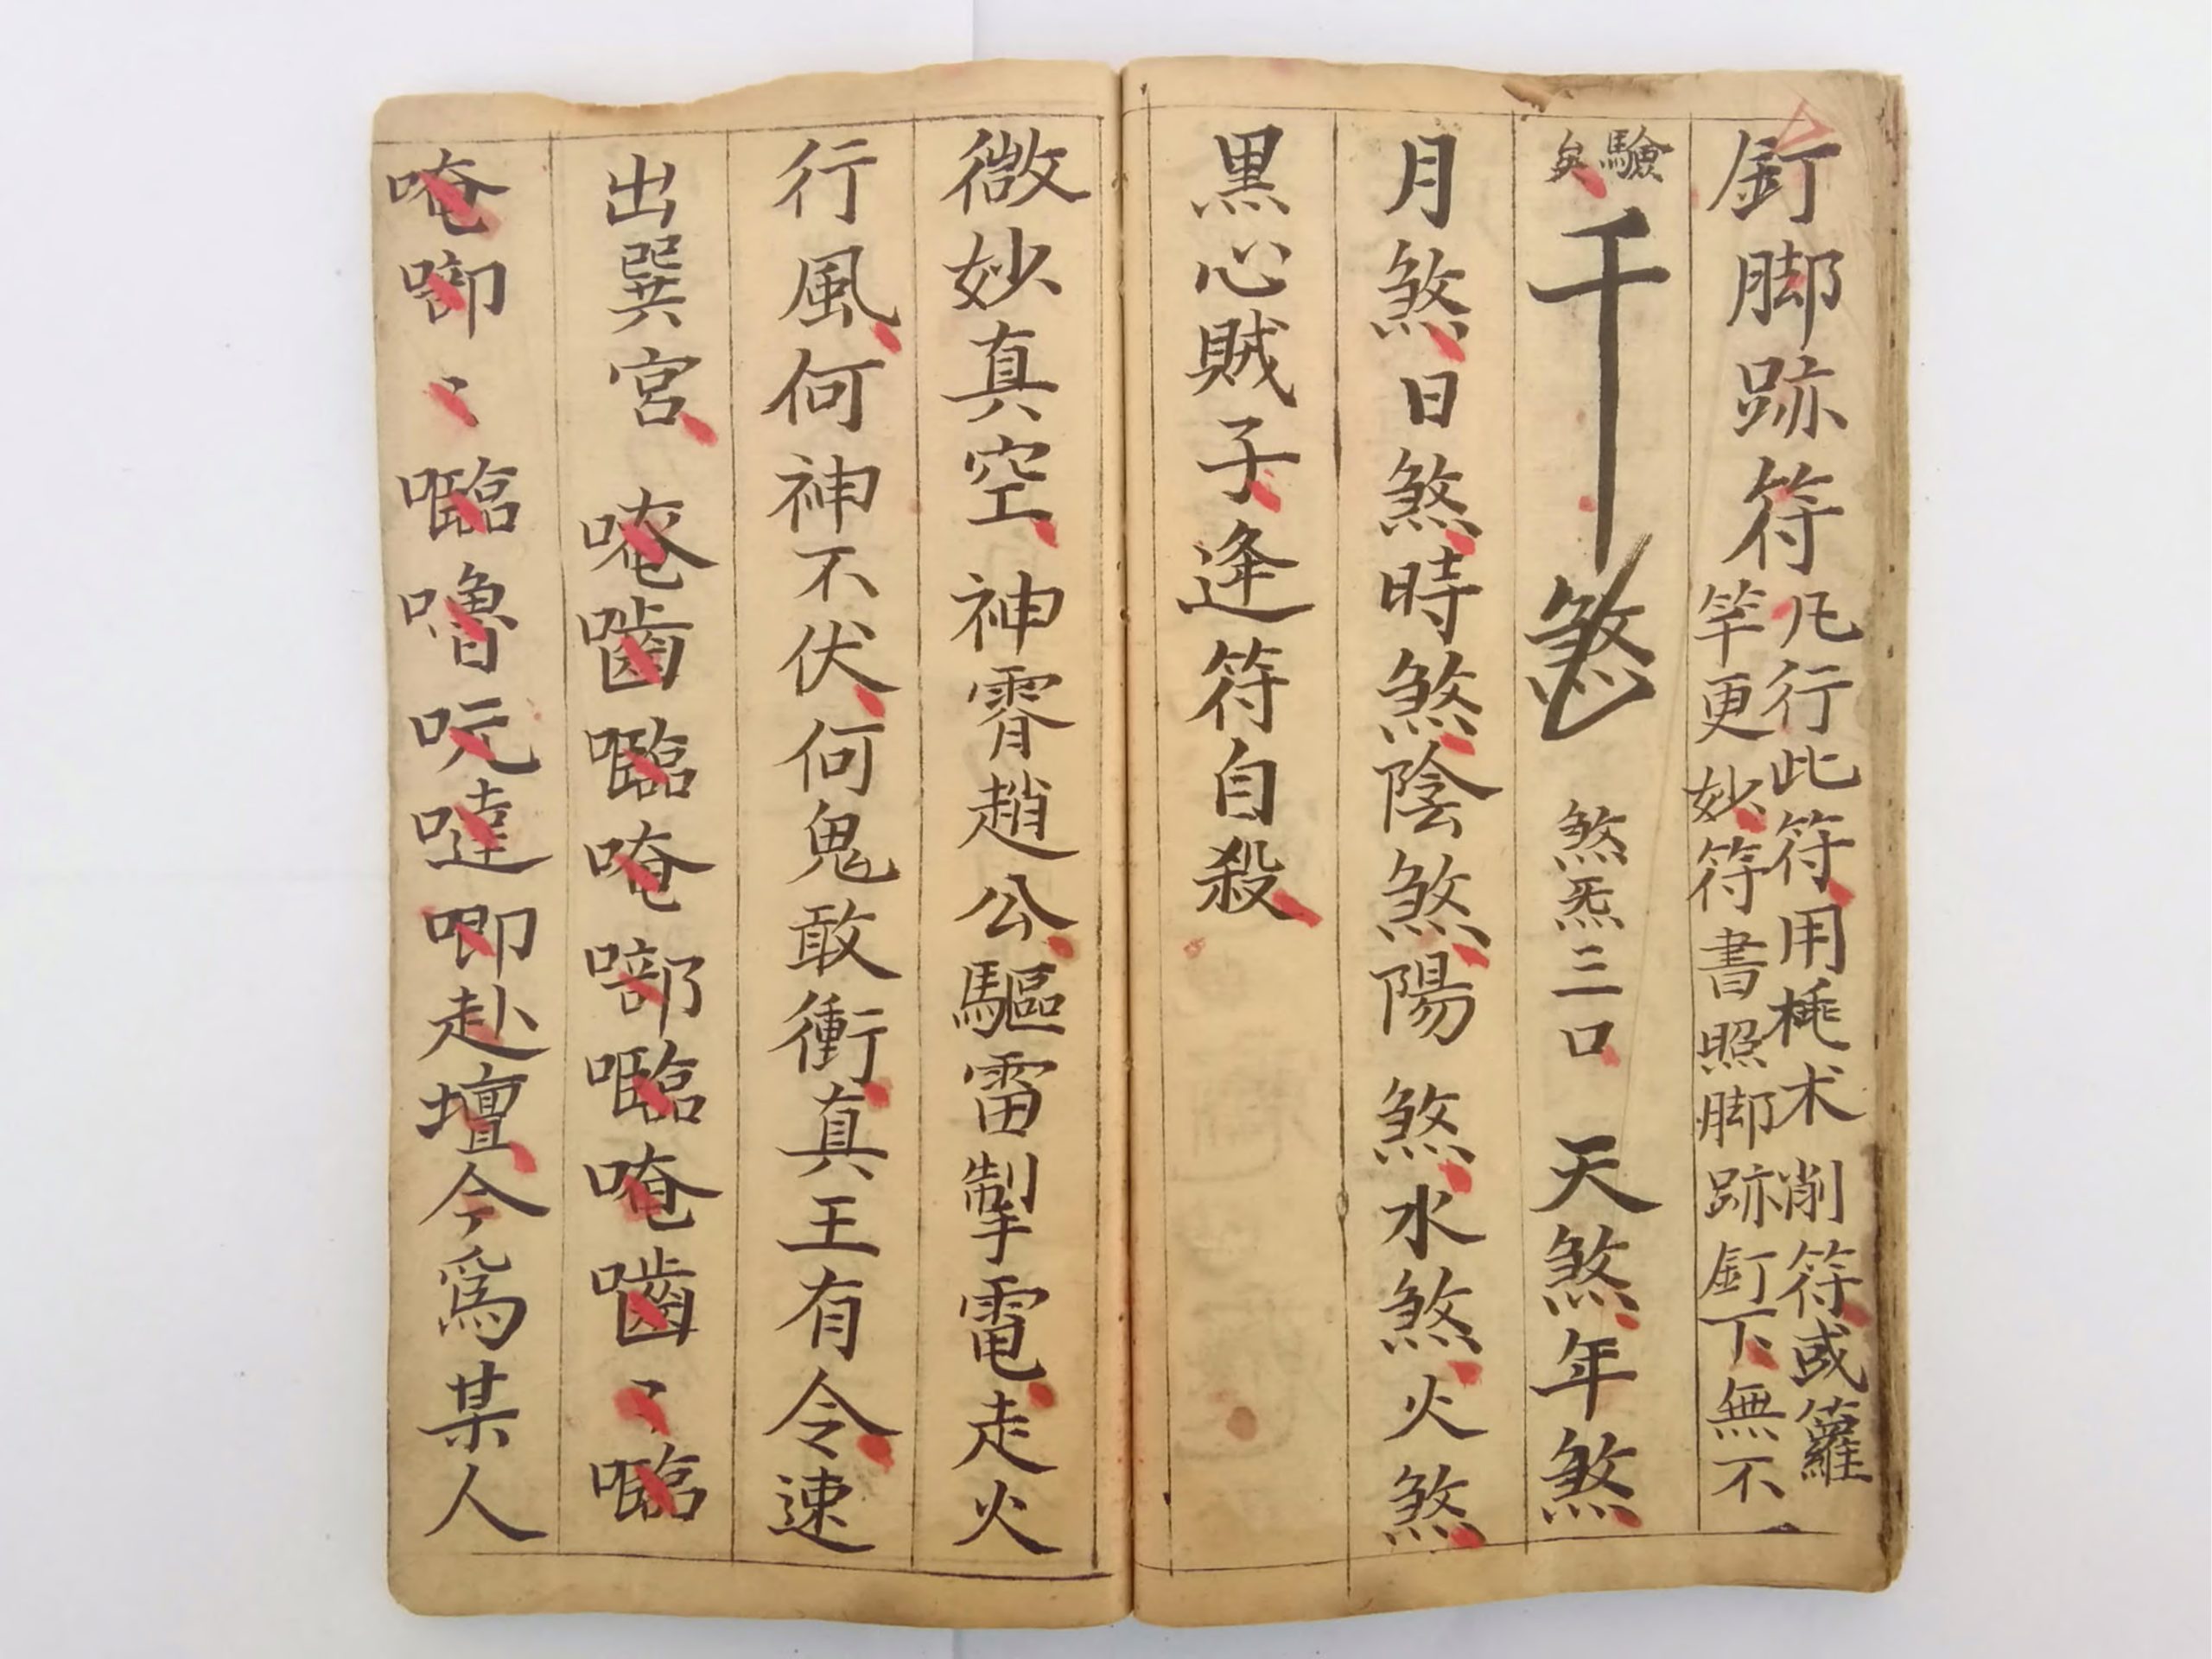 釘脚跡符
凡行此符用桃木削符或籮
竿更妙符書照脚跡釘下無不
驗矣
千煞 煞炁三口 天煞年煞
月煞日煞時煞陰煞陽煞水煞火煞
黑心賊子逢符自殺
微妙真空神霄趙公驅雷掣電走火
行風何神不伏何鬼敢衝真王有令速
出巽宮唵嚙㘕唵㗣㘕唵嚙〻㘕
唵啣〻㘕嚕呍噠唧赴壇今爲某人